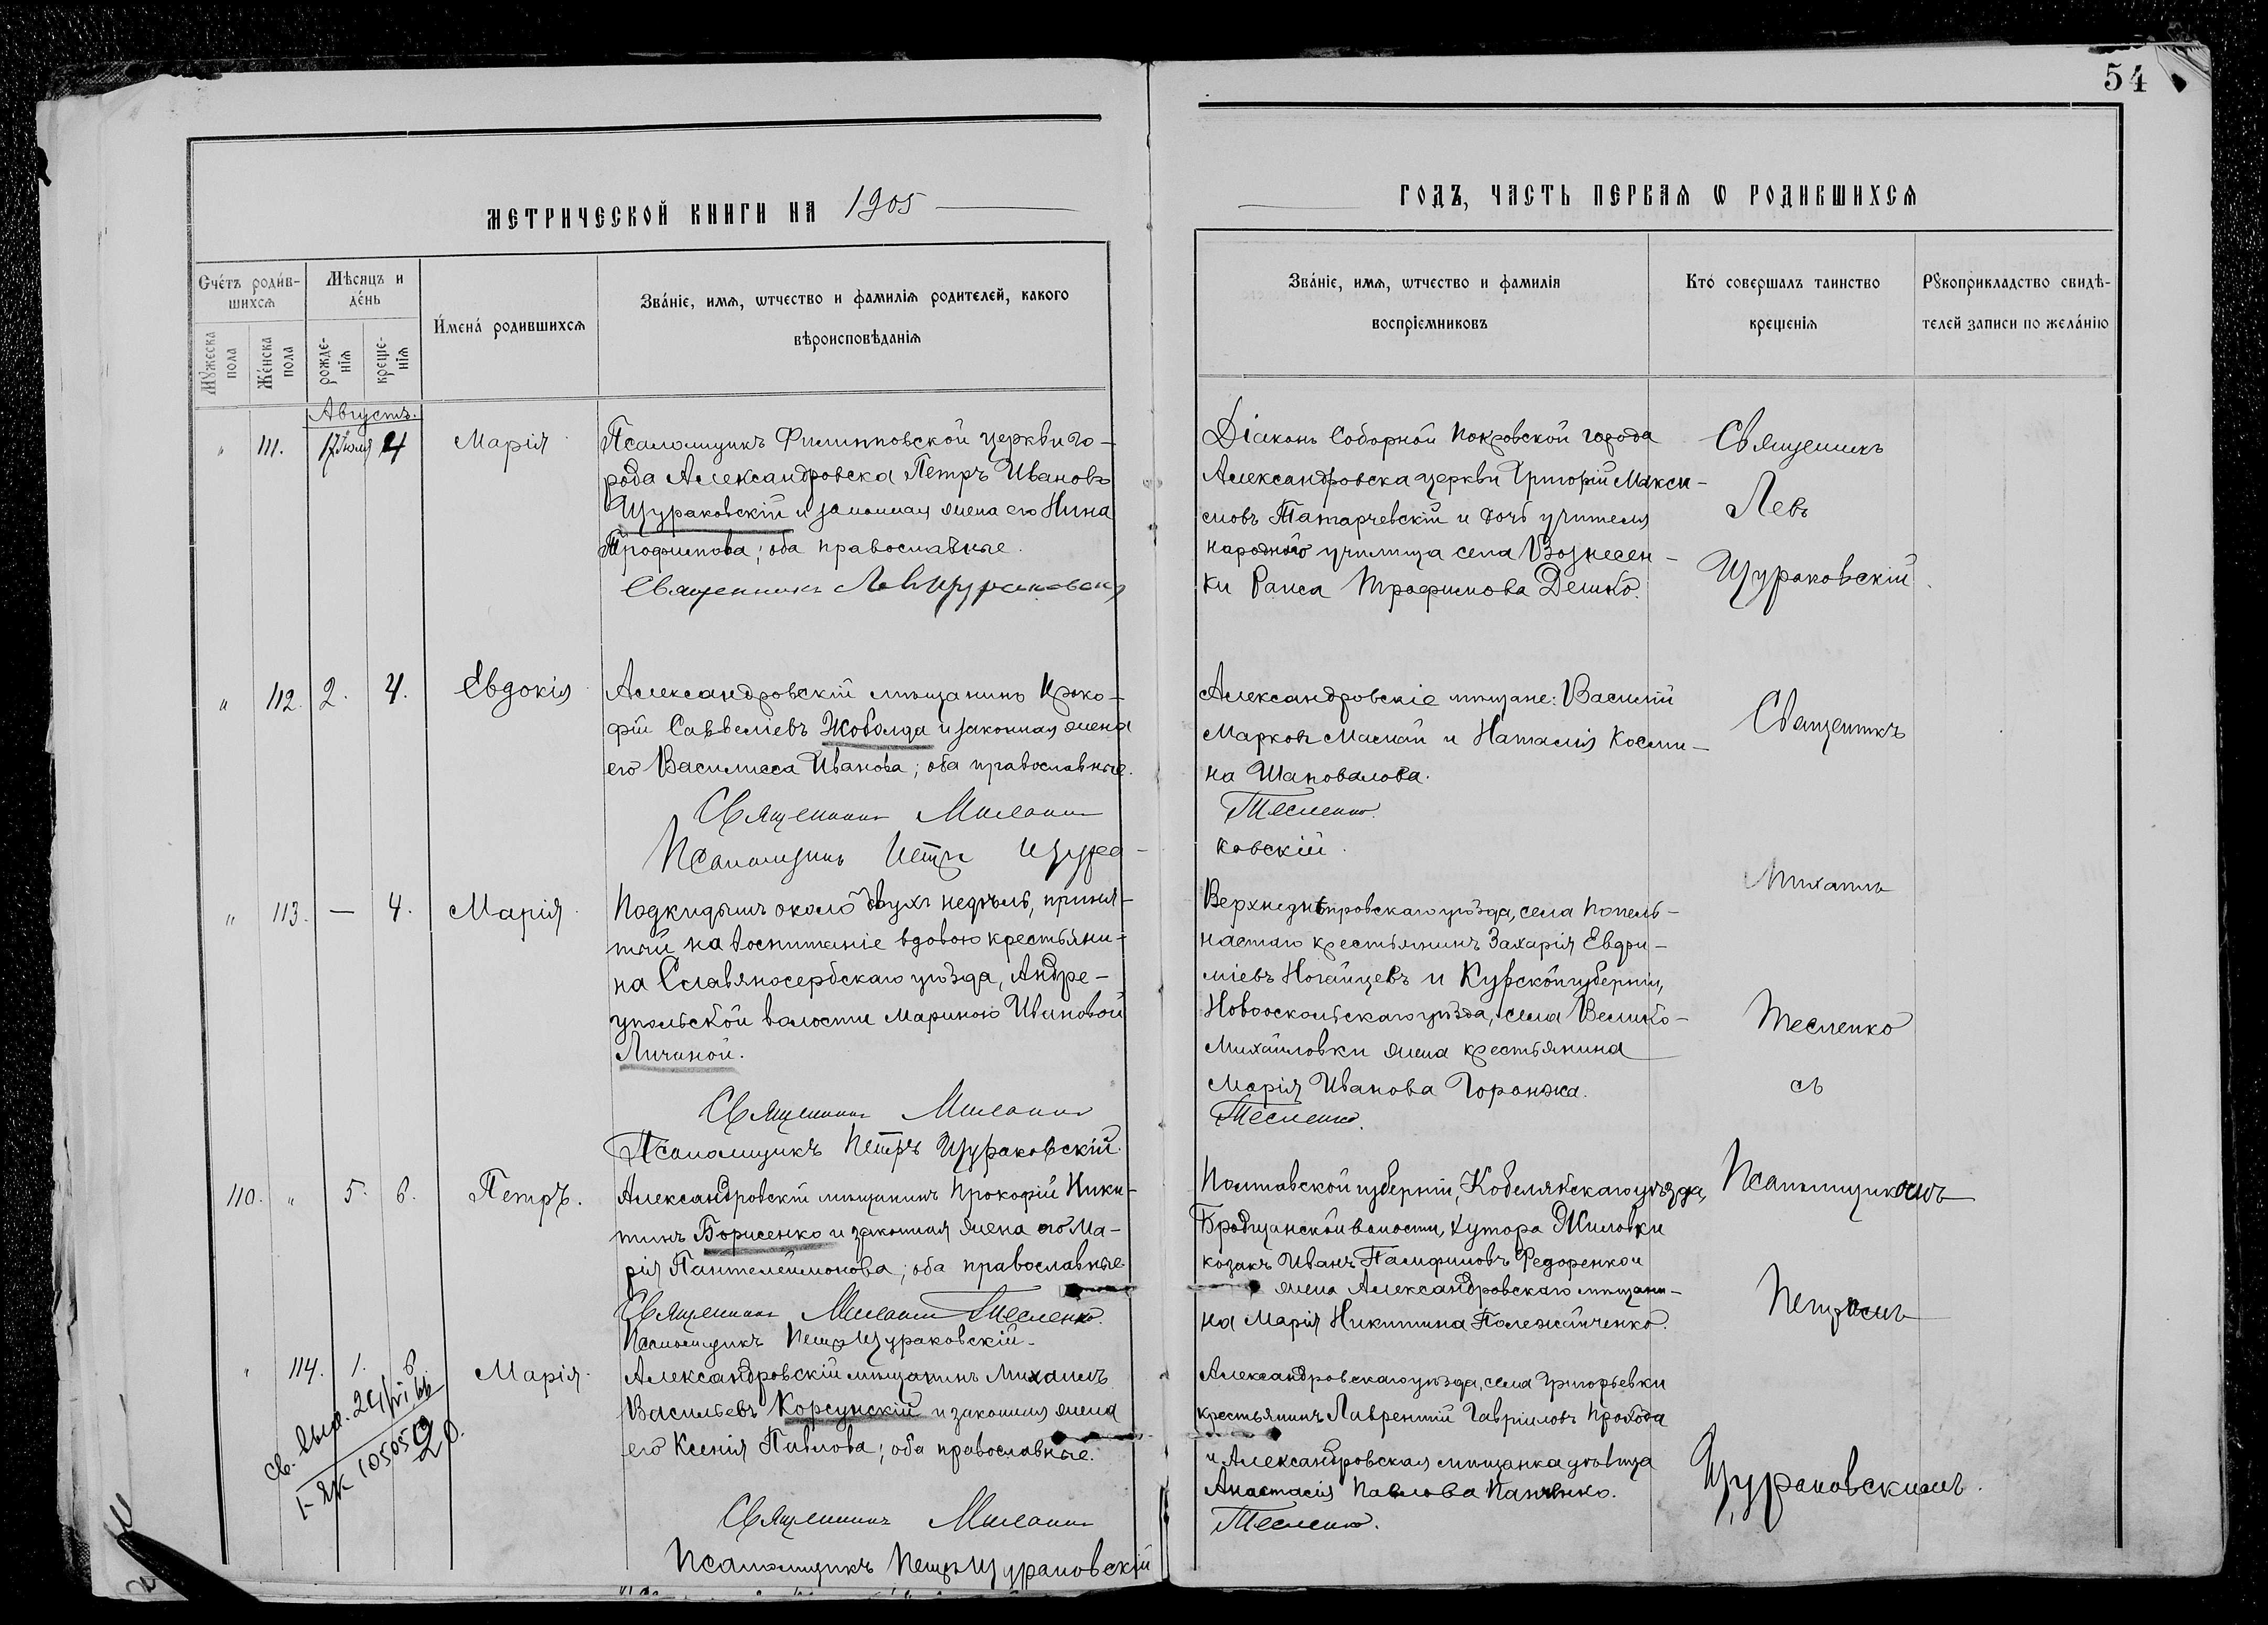 54
МЕТРИЧЕСКОЙ КНИГИ НА 1905
ГОДЪ, ЧАСТЬ ПЕРВАЯ Ѡ РОДИВШИХСЯ
Счетъ родившихся
Мѣсяцъ и день
Имена родившихся
Званіе, имя, ѿчество и фамилія родителей, какого
вѣроисповѣданія
Мужеска пола
Женска пола
рожде-
нія
креще-
нія
Званіе, имя, ѿчество и фамилія
воспріемниковъ
Кто совершалъ таинство
крещенія
Рукоприкладство свидѣ-
телей записи по желанію
Августъ.
" 111. 17 Іюля 4 Марія
Псаломщикъ Филипповской церкви го-
рода Александровска Петръ Ивановъ
Щураковскій и законная жена его Нина
Трофимова; оба православные.
Священникъ Левъ Щураковскій
Діаконъ Соборной Покровской города
Александровска церкви Григорій Макси-
мовъ Татарчевскій и дочь учителя
народнаго училища села Вознесен-
ки Раиса Трофимова Демко.
Священникъ
Левъ
Щураковскій
" 112. 2. 4. Евдокія
Александровскій мѣщанинъ Проко-
фій Саввеліевъ Жоволда и законная жена
его Василисса Иванова; оба православные.
Священникъ Михаилъ
Псаломщикъ Петръ Щура-
Александровскіе мѣщане: Василій
Марковъ Малый и Наталія Косми-
на Шаповалова.
Тесленко.
ковскій.
Священникъ
Михаилъ
" 113. — 4. Марія
Подкидышъ около двухъ недѣль, приня-
тый на воспитаніе вдовою крестьяни-
на Славяносербскаго уѣзда, Андре-
упольской волости Мариною Ивановой
Личиной.
Священникъ Михаилъ
Псаломщикъ Петръ Щураковскій.
Верхнеднѣпровскаго уѣзда, села Попель-
настаго крестьянинъ Захарія Евфи-
міевъ Ногайцевъ и Курской губерніи,
Новооскольскаго уѣзда, села Велико-
михайловки жена крестьянина
Марія Иванова Горонжа.
Тесленко.
Тесленко
съ
110. " 5. 6. Петръ.
Александровскій мѣщанинъ Прокофій Ники-
тинъ Борисенко и законная жена его Ма-
рія Пантелеймонова; оба православные
Священникъ Михаилъ Тесленко.
Псаломщикъ Петръ Щураковскій.
Полтавской губерніи, Кобелякскаго уѣзда,
Бродщанской волости, хутора Жиловки
козакъ Иванъ Памфиловъ Федоренко и
жена Александровскаго мѣщани-
на Марія Никитина Полежайченко.
Псаломщикомъ
Петромъ
" 114. 1. 6. Марія.
Александровскій мѣщанинъ Михаилъ
Васильевъ Корсунскій и законная жена
его Ксенія Павлова; оба православные.
Священникъ Михаилъ
Псаломщикъ Петръ Щураковскій
Александровскаго уѣзда, села Григорьевки
крестьянинъ Лаврентій Гавріиловъ Прохода
и Александровская мѣщанка дѣвица
Анастасія Павлова Панченко.
Тесленко.
Щураковскимъ.